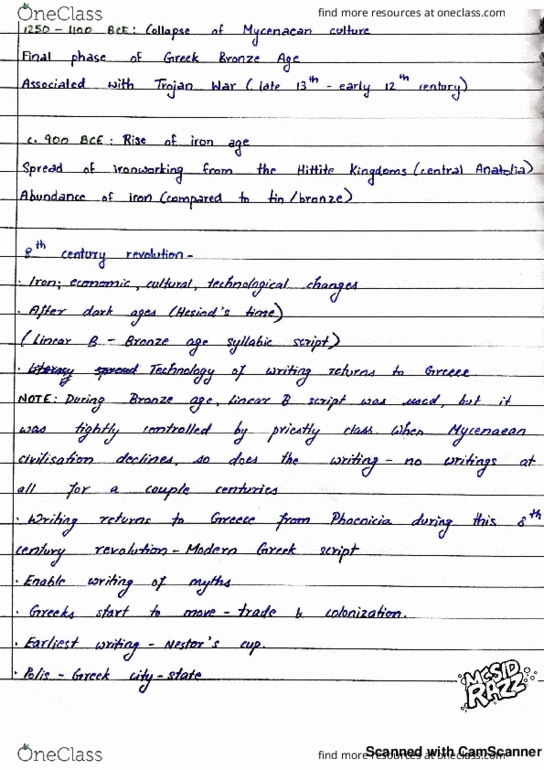 OneClass
find more resources at oneclass.com
1250 - 1100 BCE: Collapse of Mycenaean culture
Final phase of Greek Bronze Age
Associated with Trojan War (late 13th - early 12th century)
c. 900 BCE: Rise of iron age
Spread of ironworking from the Hittite Kingdoms (central Anatolia)
Abundance of iron (compared to tin/bronze)
8th century revolution -
· Iron; economic, cultural, technological changes
· After dark ages (Hesiod's time)
(Linear B - Bronze age syllabic script)
· Literacy spread Technology of writing returns to Greece
NOTE: During Bronze age, Linear B script was used, but it
was tightly controlled by priestly class. When Mycenaean
civilisation declines, so does the writing - no writings at
all for a couple centuries
· Writing returns to Greece from Phoenicia during this 8th
century revolution - Modern Greek script
· Enable writing of myths
· Greeks start to move - trade & colonization.
· Earliest writing - Nestor's cup.
· Polis - Greek city-state
MCSID
RAZZ
OneClass
find more resources at oneclass.com
Scanned with CamScanner